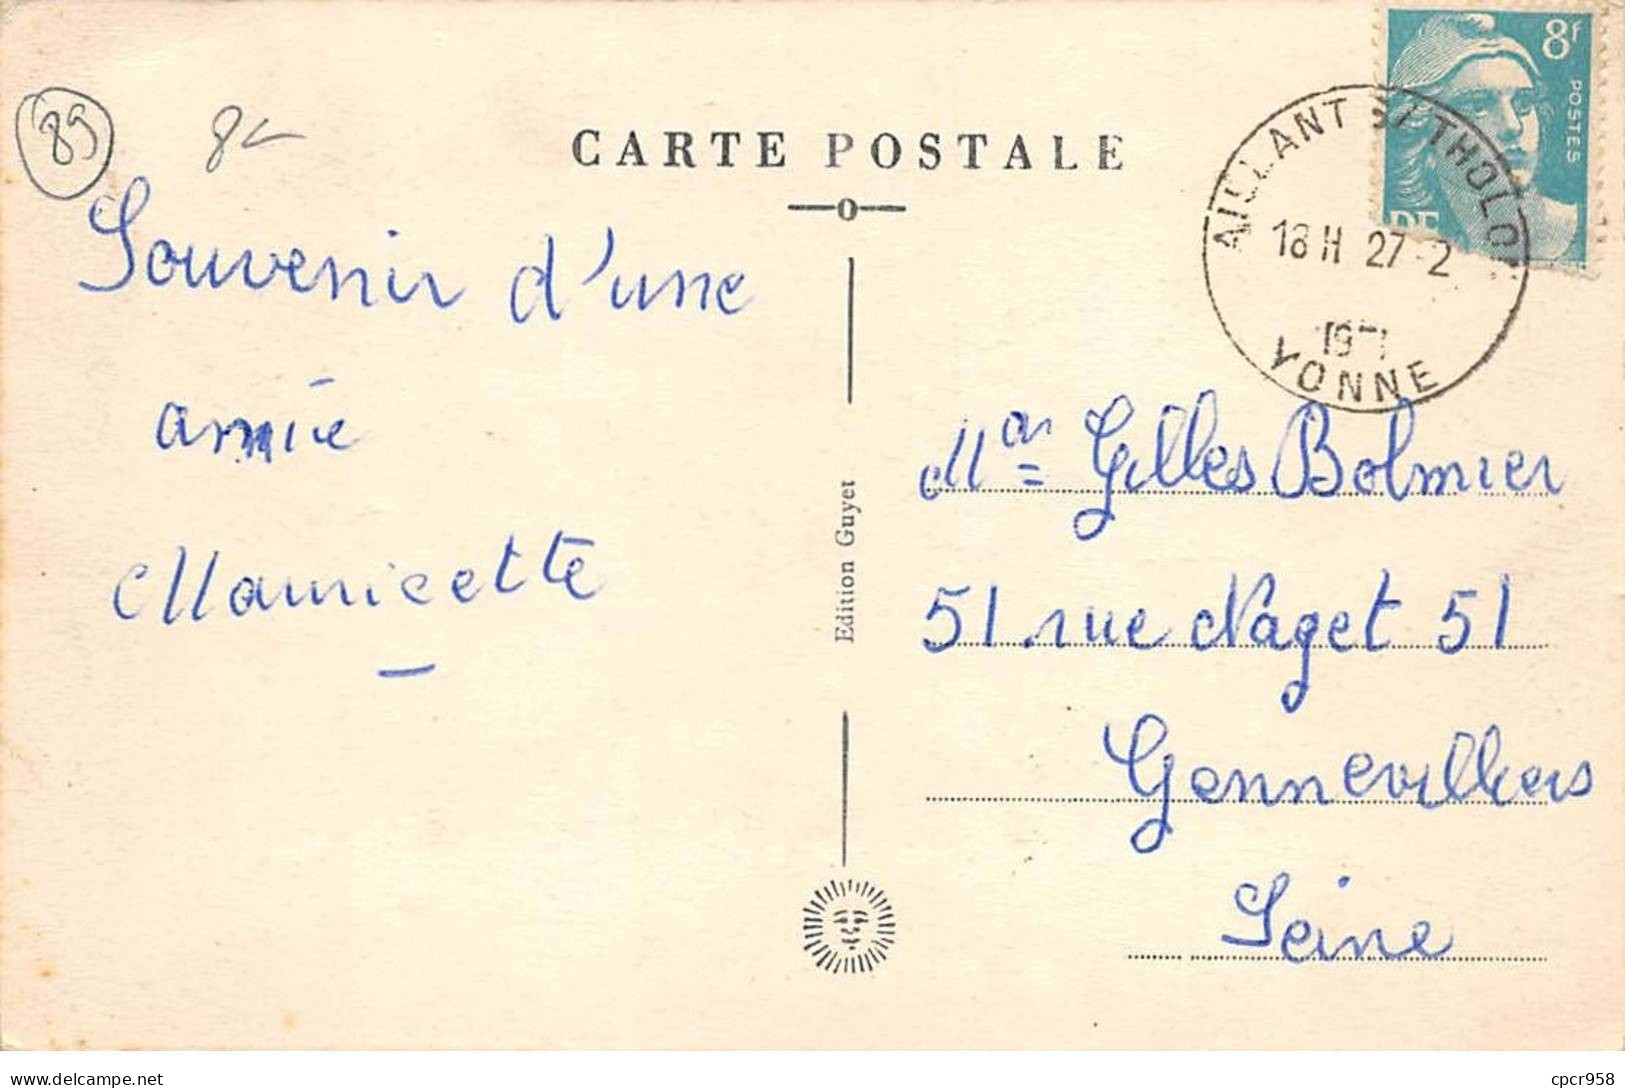 89
8f
POSTES
CARTE POSTALE
AILLANT S/ THOLON
18 H 27-2
YONNE
Souvenir d'une
amie
Mauricette
Edition Guyet
Gilles Bolmier
51 rue Naget 51
Gennevilliers
Seine
delcampe.net
cpcr958